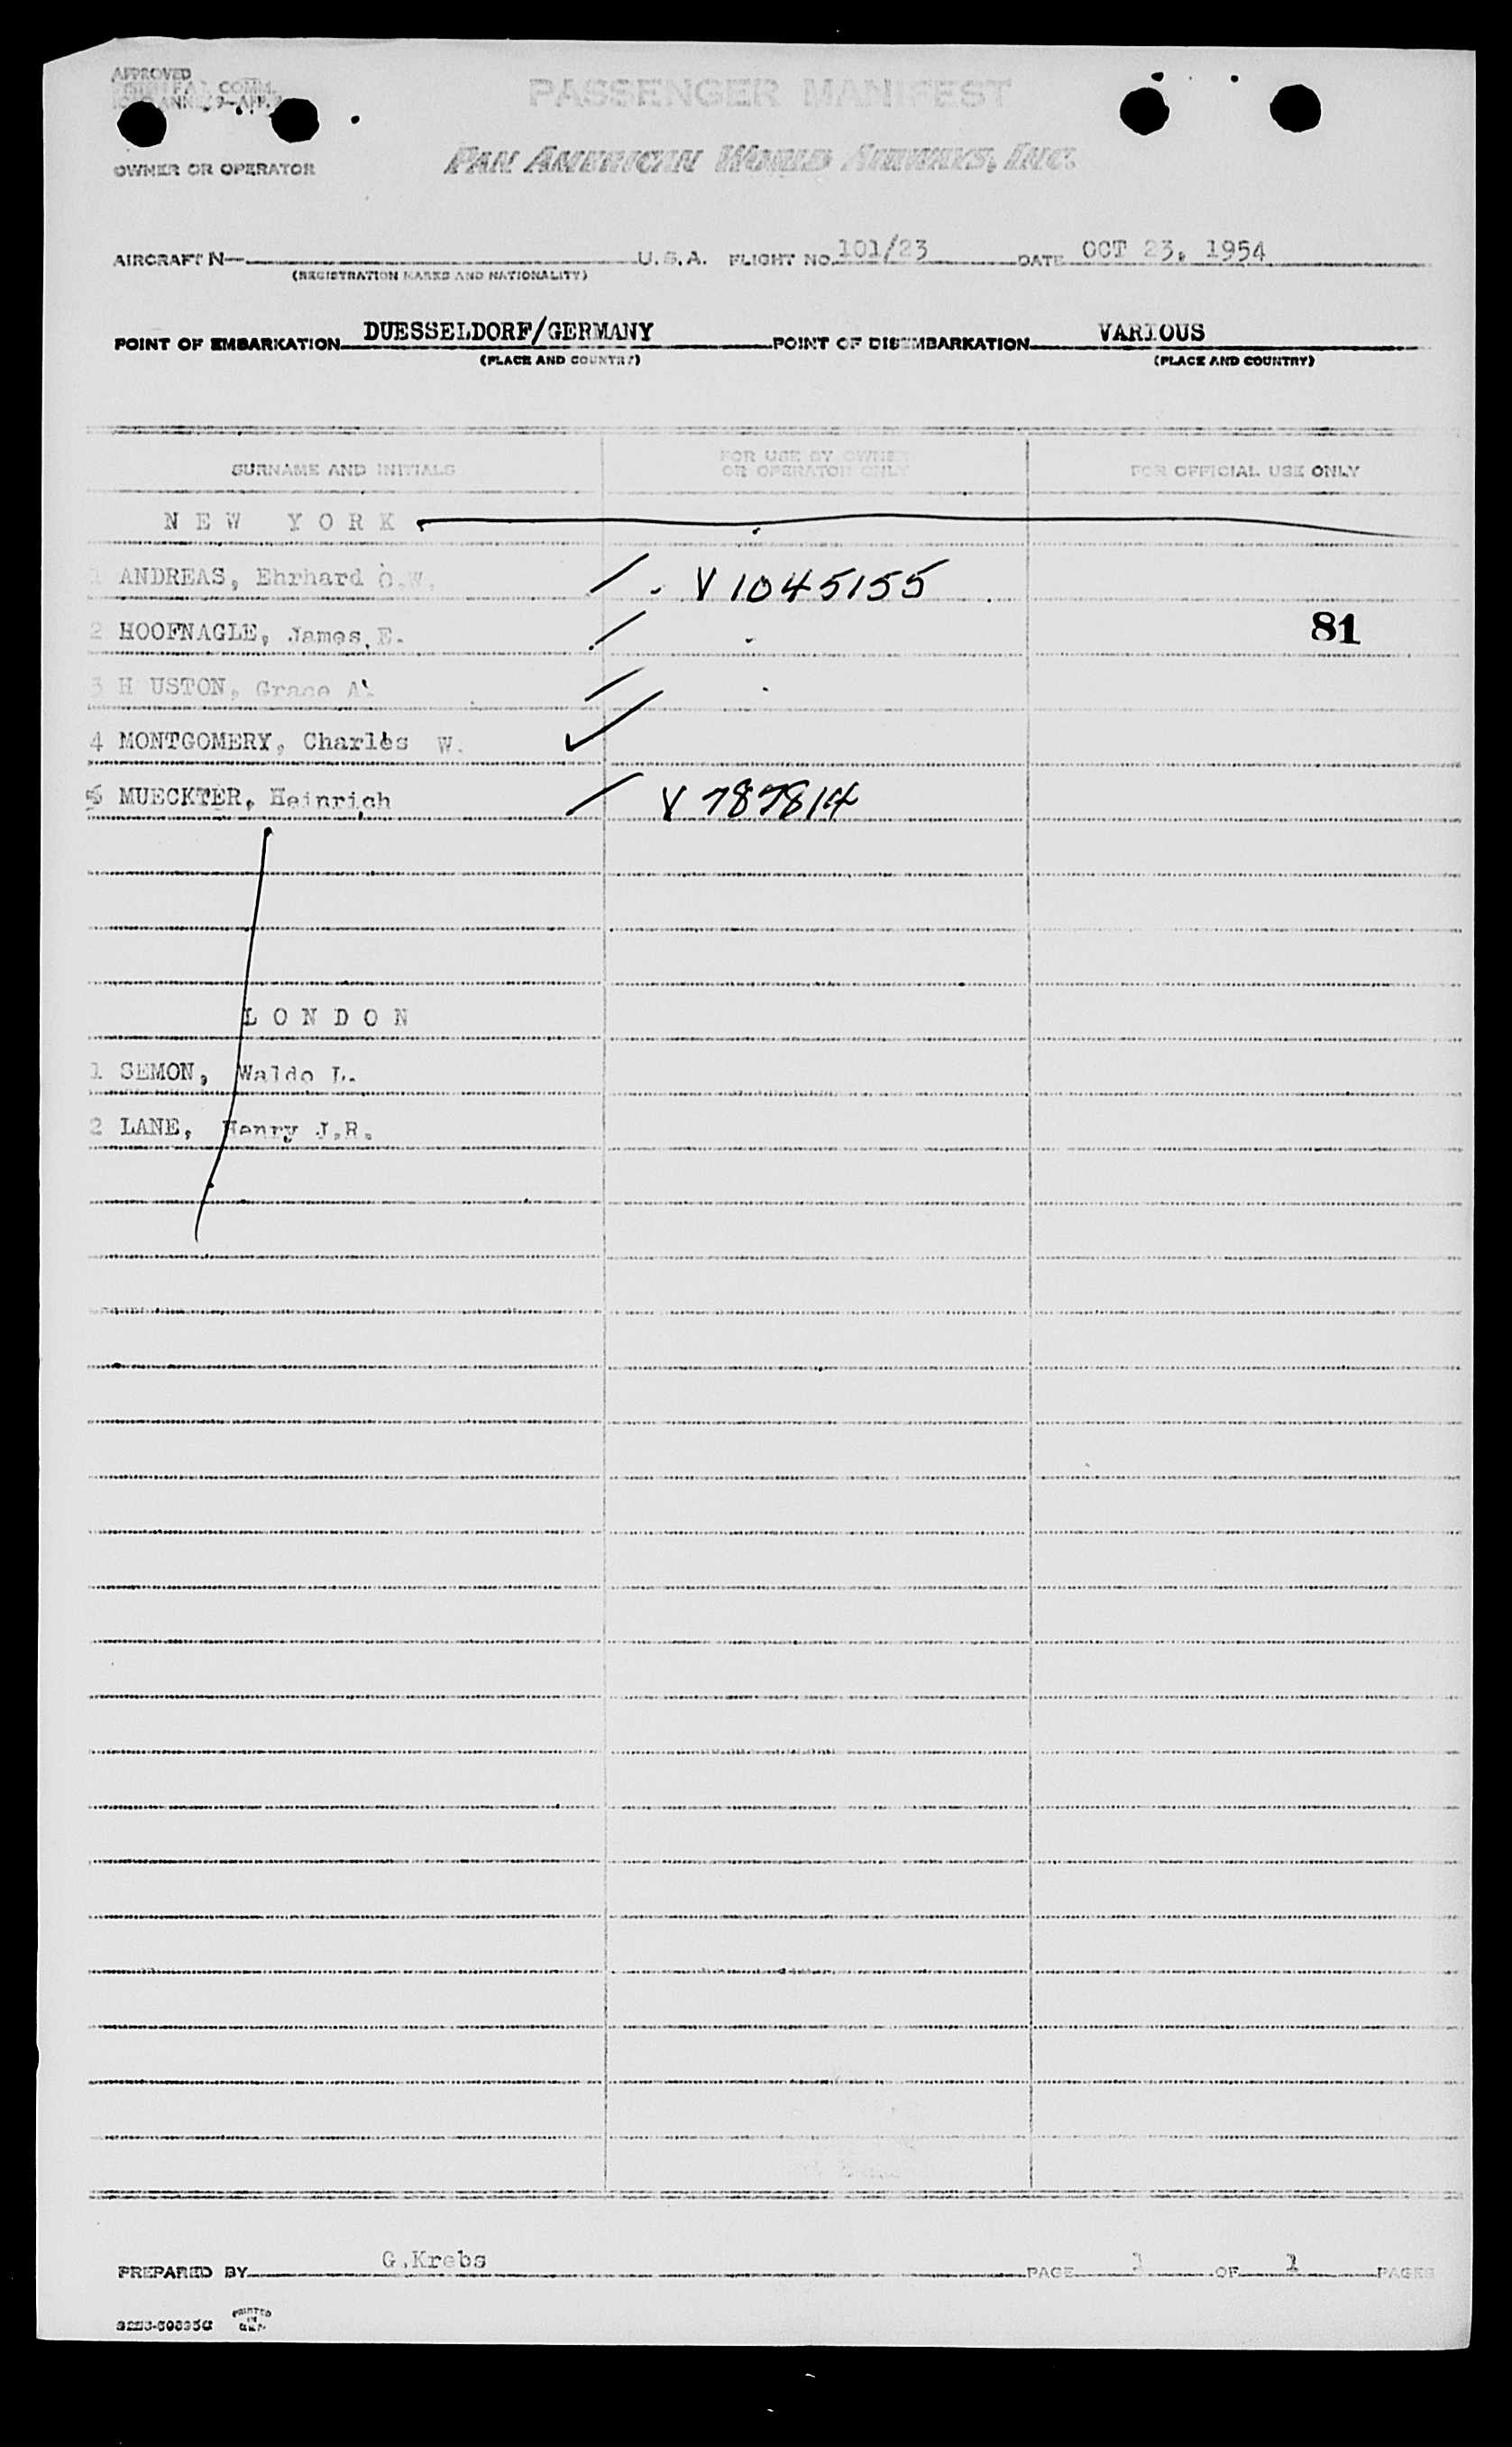 APPROVED
COMM.
PASSENGER MANIFEST
OWNER OR OPERATOR
PAN AMERICAN WORLD AIRWAYS, INC.
AIRCRAFT N— U.S.A. FLIGHT NO. 101/23 DATE OCT 23, 1954
(REGISTRATION MARKS AND NATIONALITY)
POINT OF EMBARKATION DUESSELDORF/GERMANY POINT OF DISEMBARKATION VARIOUS
(PLACE AND COUNTRY) (PLACE AND COUNTRY)
SURNAME AND INITIALS FOR USE BY OWNER OR OPERATOR ONLY FOR OFFICIAL USE ONLY
N E W Y O R K
1 ANDREAS, Ehrhard O.W. V 1045155
2 HOOFNAGLE, James E. 81
3 H USTON, Grace A.
4 MONTGOMERY, Charles W.
5 MUECKTER, Heinrich V 787814
L O N D O N
1 SEMON, Waldo L.
2 LANE, Henry J.R.
PREPARED BY G.Krebs PAGE 1 OF 1 PAGES
PRINTED
IN